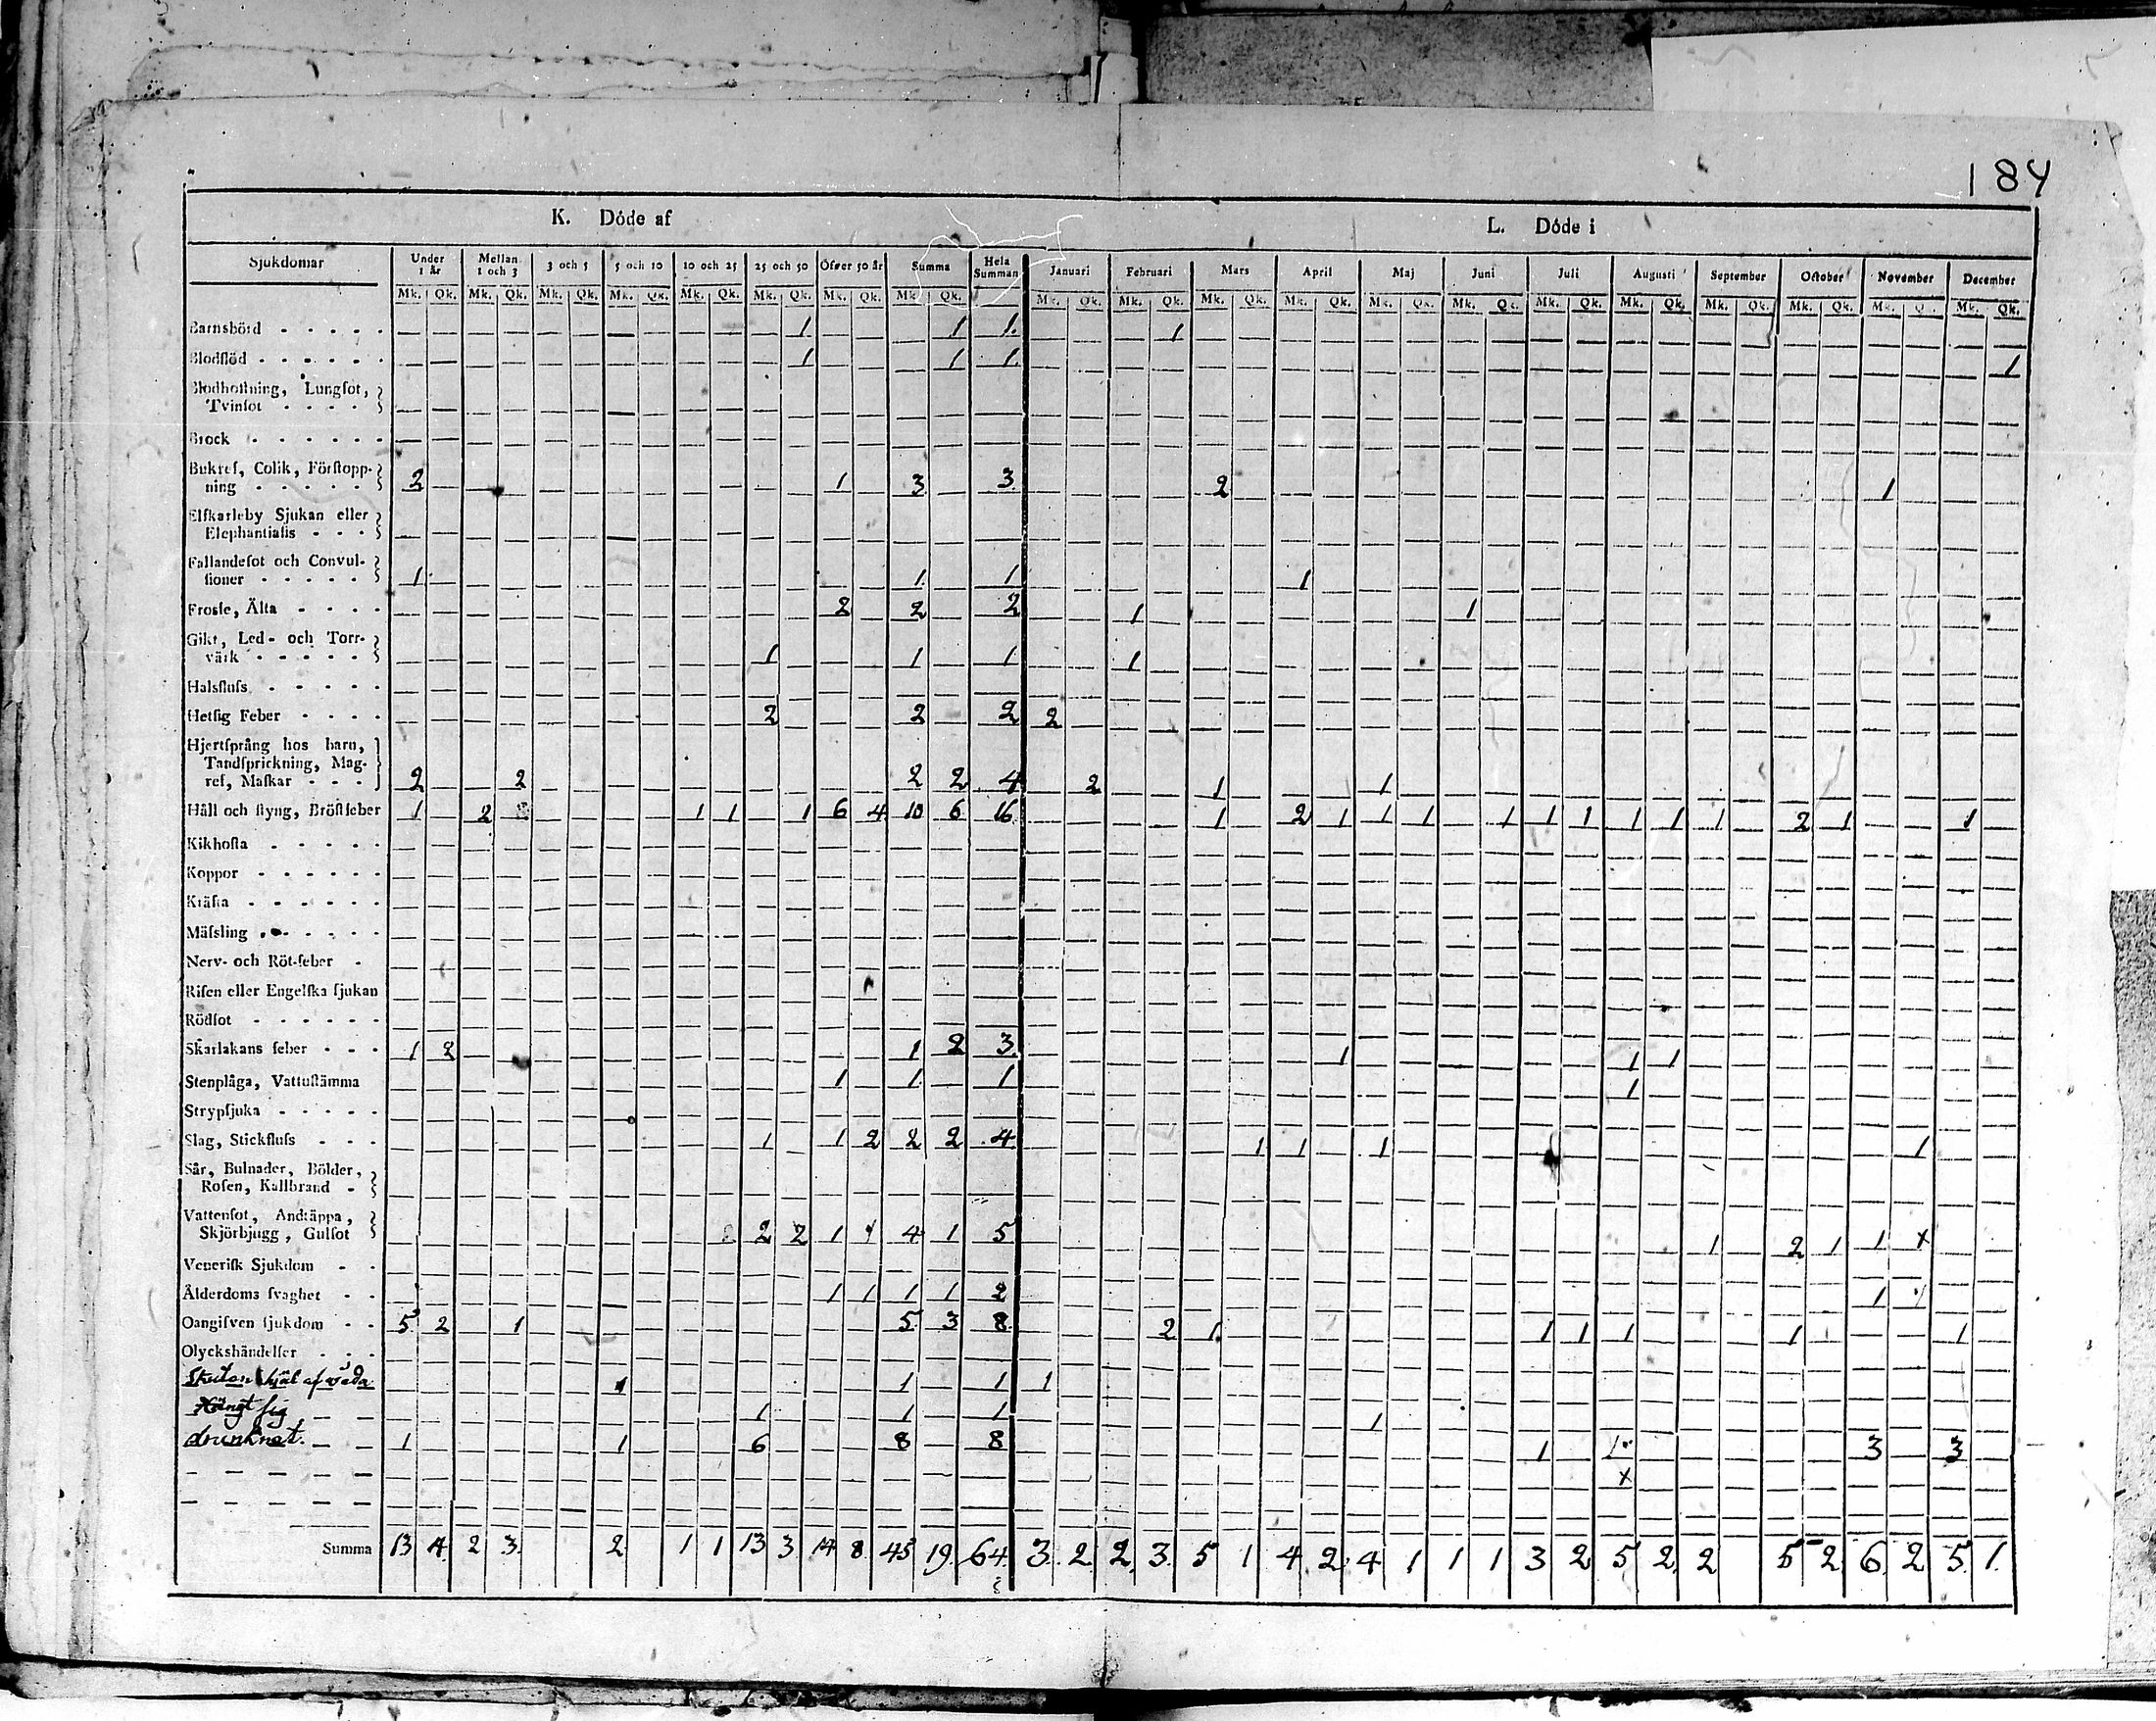 184
K. Döde af L. Döde i
Sjukdomar Under 1 år Mellan 1 och 3 3 och 5 5 och 10 10 och 25 25 och 50 Öfver 50 år Summa Hela Summan Januari Februari Mars April Maj Juni Juli Augusti September October November December
Mk. Qk. Mk. Qk. Mk. Qk. Mk. Qk. Mk. Qk. Mk. Qk. Mk. Qk. Mk. Qk. Mk. Qk. Mk. Qk. Mk. Qk. Mk. Qk. Mk. Qk. Mk. Qk. Mk. Qk. Mk. Qk. Mk. Qk. Mk. Qk. Mk. Qk. Mk. Qk.
Barnsbörd 1 1 1. 1
Blodflöd 1 1 1. 1
Blodhostning, Lungsot,
Tvinsot
Brock
Bukref, Colik, Förstopp-
ning 2 1 3 3 2 1
Elfkarleby Sjukan eller
Elephantiasis
Fallandesot och Convul-
sioner 1 1 1 1
Frossa, Älta 2 2 2 1 1
Gikt, Led- och Torr-
värk 1 1 1 1
Halsfluss
Hetsig Feber 2 2 2 2
Hjertsprång hos barn,
Tandsprickning, Mag-
ref, Maskar 2 2 2 2 4 2 1 1
Håll och styng, Bröstfeber 1 2 1 1 1 6 4 10 6 16 1 2 1 1 1 1 1 1 1 1 1 2 1 1
Kikhosta
Koppor
Kräfta
Mässling
Nerv- och Röt-feber
Risen eller Engelska sjukan
Rödsot
Skarlakans feber 1 2 1 2 3 1 1 1
Stenplåga, Vattustämma 1 1 1 1
Strypsjuka
Slag, Stickfluss 1 1 2 2 2 4 1 1 1 1
Sår, Bulnader, Bölder,
Rosen, Kallbrand
Vattensot, Andtäppa,
Skjörbjugg, Gulsot 2 2 1 4 1 5 1 2 1 1 x
Venerisk Sjukdom
Ålderdoms svaghet 1 1 1 1 2 1
Oangifven sjukdom 5 2 1 5 3 8 2 1 1 1 1 1 1
Olyckshändelser
Skuten ihjäl af våda 1 1 1 1
Hängt sig 1 1 1 1
drunknat. 1 1 6 8 8 1 1 3 3
x
Summa 13 4 2 3 2 1 1 13 3 14 8 45 19 64 3 2 2 3 5 1 4 2 4 1 1 1 3 2 5 2 2 5 2 6 2 5 1